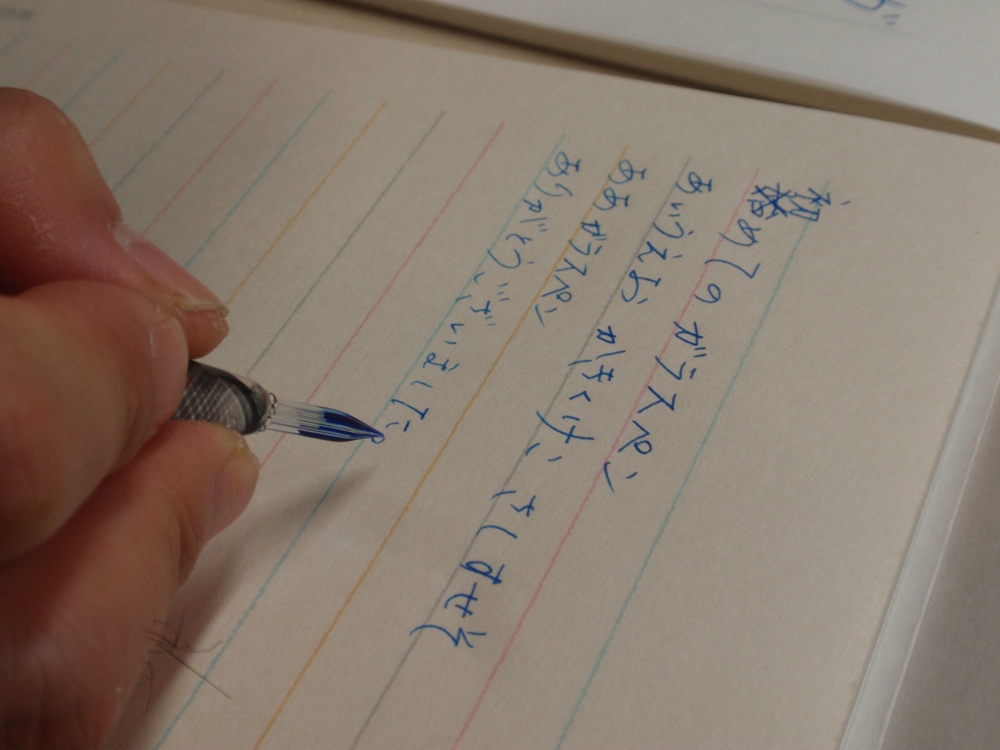 初めてのガラスペン
あいうえお かきくけこ さしすせそ
ああガラスペン
ありがとうございました